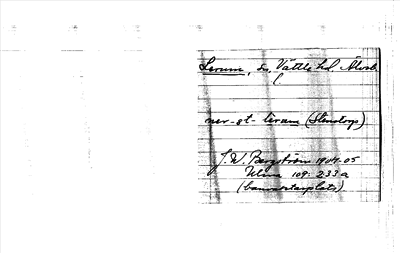 Lerum, sn, Vättle hd. Älvsb. l.
ner-at- Lerum (Stenstorp)
J. W. Bergström 1904-05
Ulma 109: 233 a
(banvaktarplats)